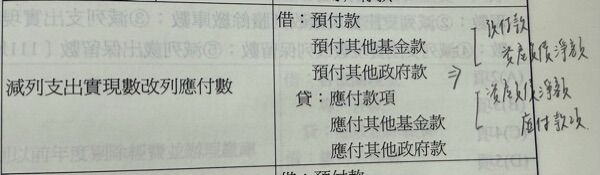 減列支出實現數改列應付數
借：預付款
預付其他基金款
預付其他政府款
貸：應付款項
應付其他基金款
應付其他政府款
⇒
預付款
資產負債淨額
資產負債淨額
應付款項